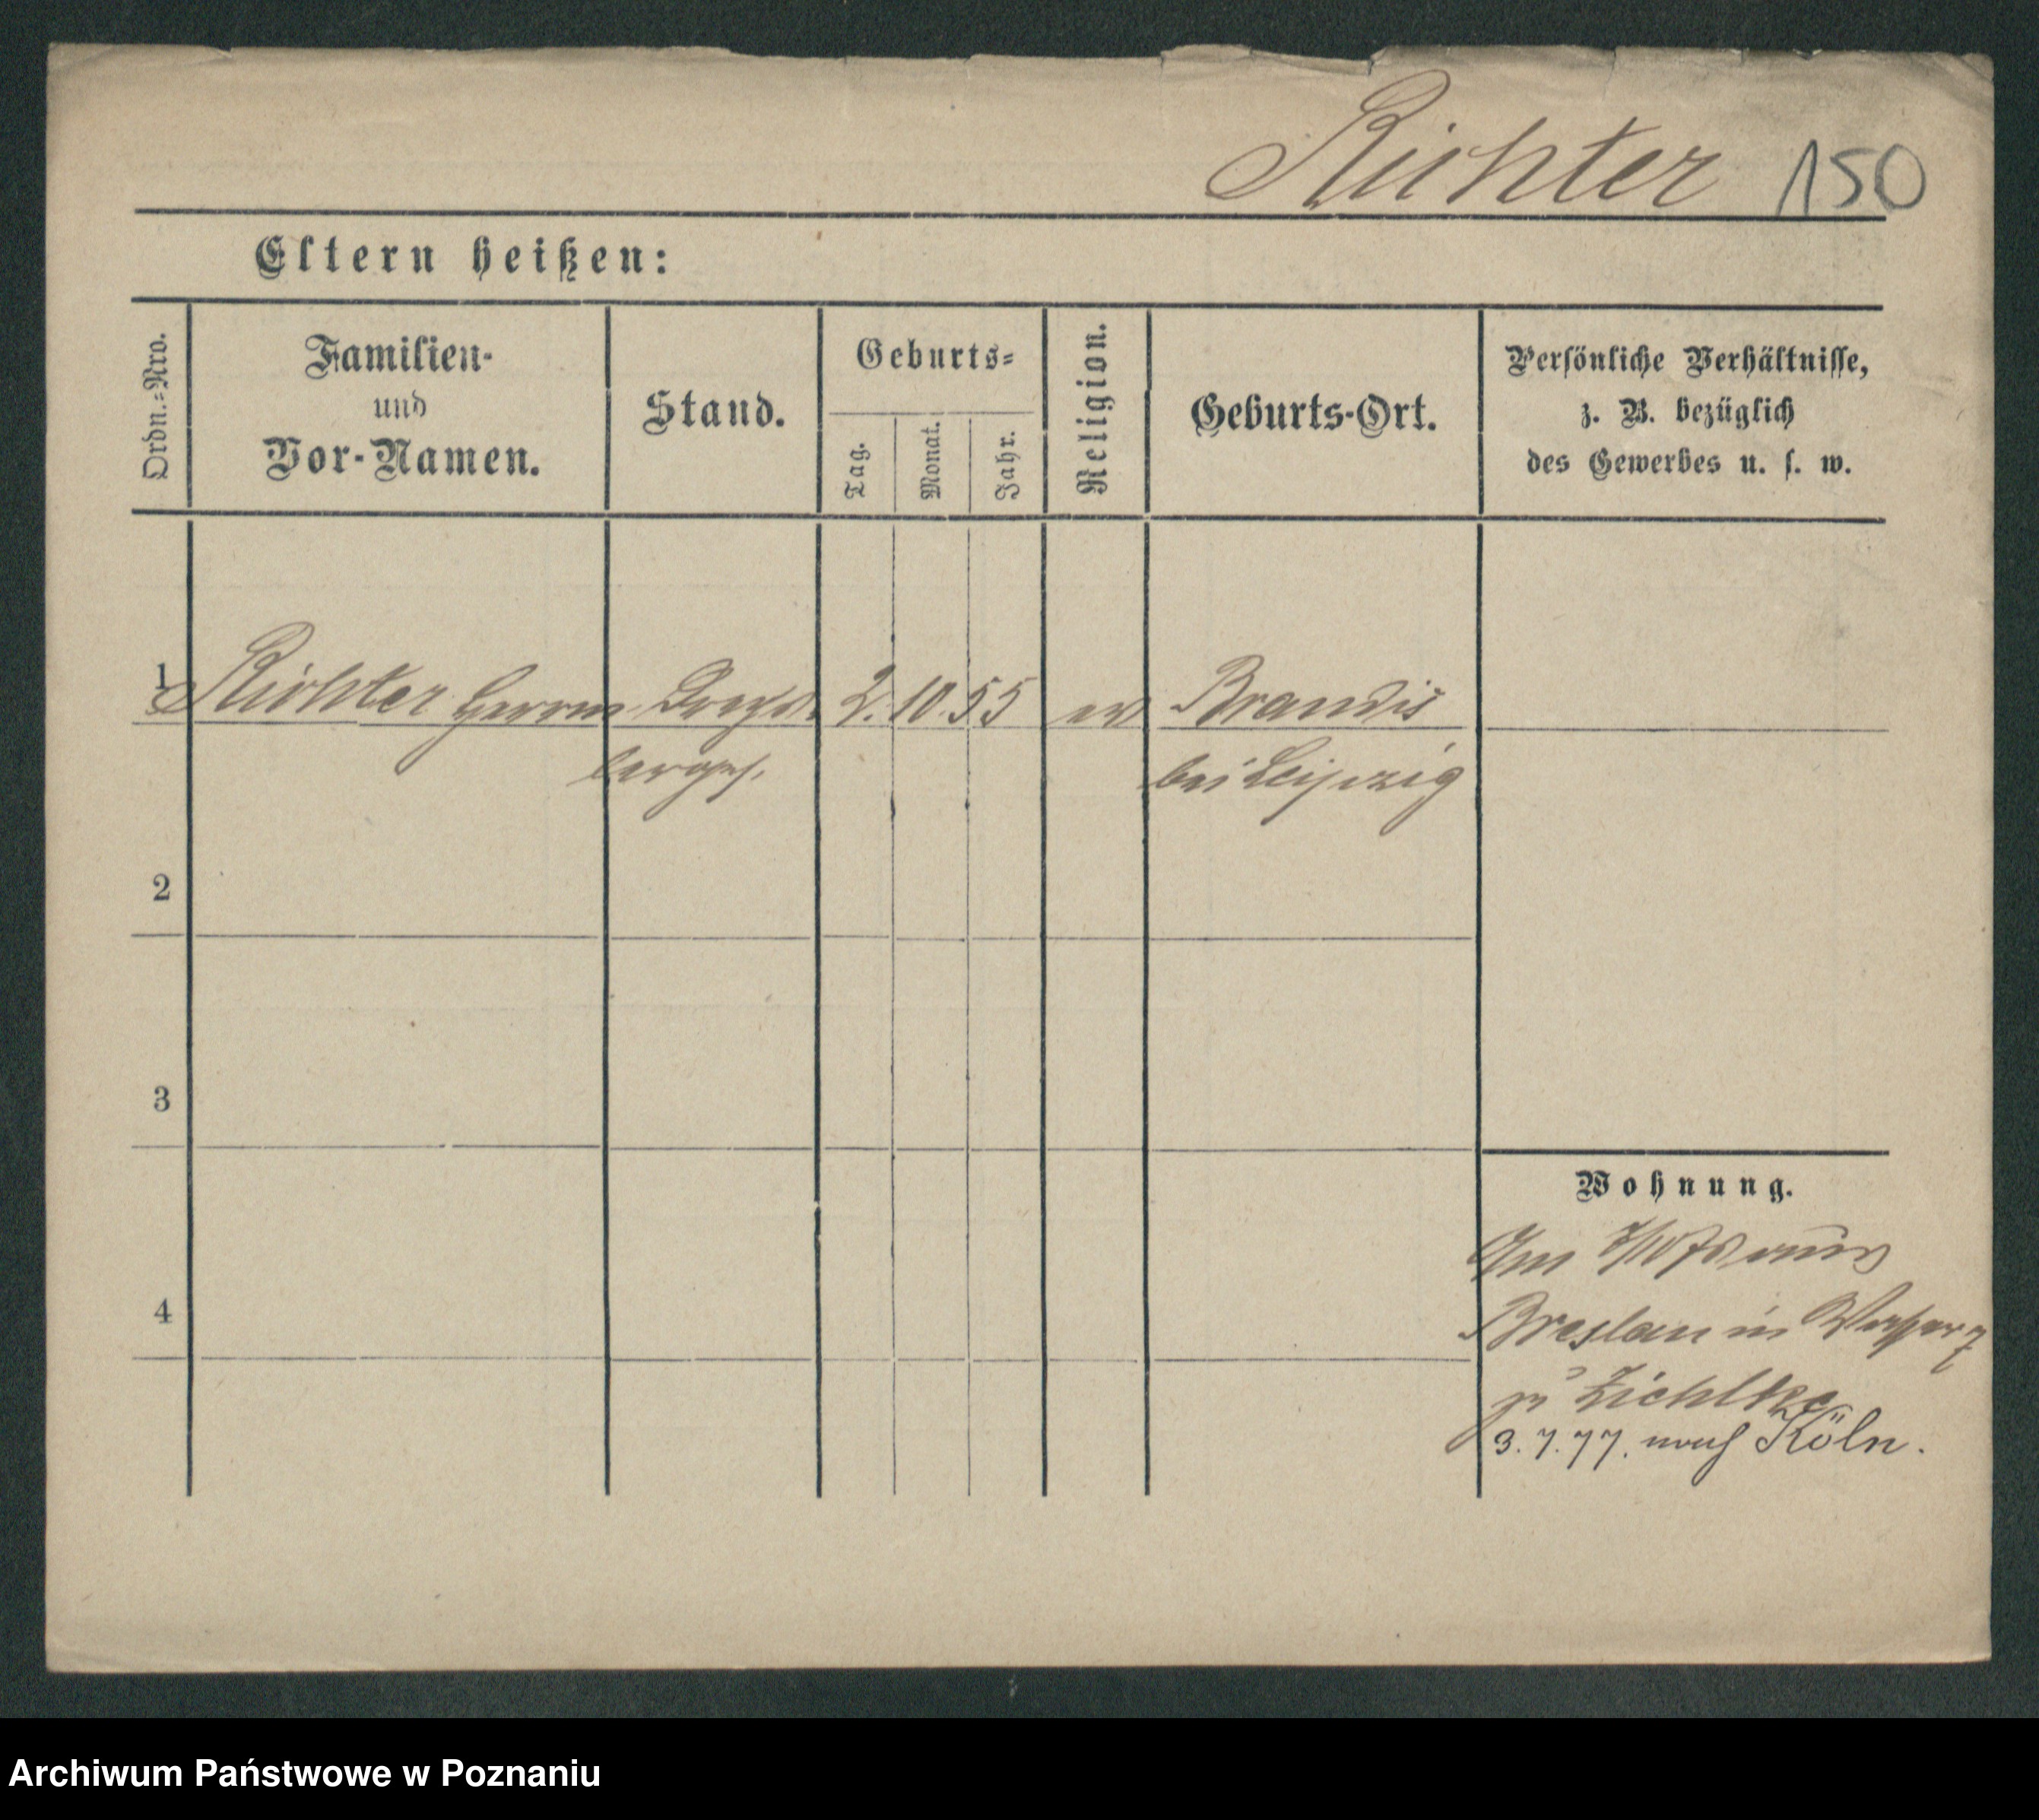 Richter 150
Eltern heißen:
Ordn.=Nro.
Familien-
und
Vor-Namen.
Stand.
Geburts=
Tag.
Monat.
Jahr.
Religion.
Geburts-Ort.
Persönliche Verhältnisse,
z. B. bezüglich
des Gewerbes u. s. w.
1 Richter Herrm 2. 10. 55 ev Brandis
bei Leipzig
2
3
4
Wohnung.
Am
Breslau in Wasser 7
zu Zichlke
3. 7. 77. nach Köln.
Archiwum Państwowe w Poznaniu